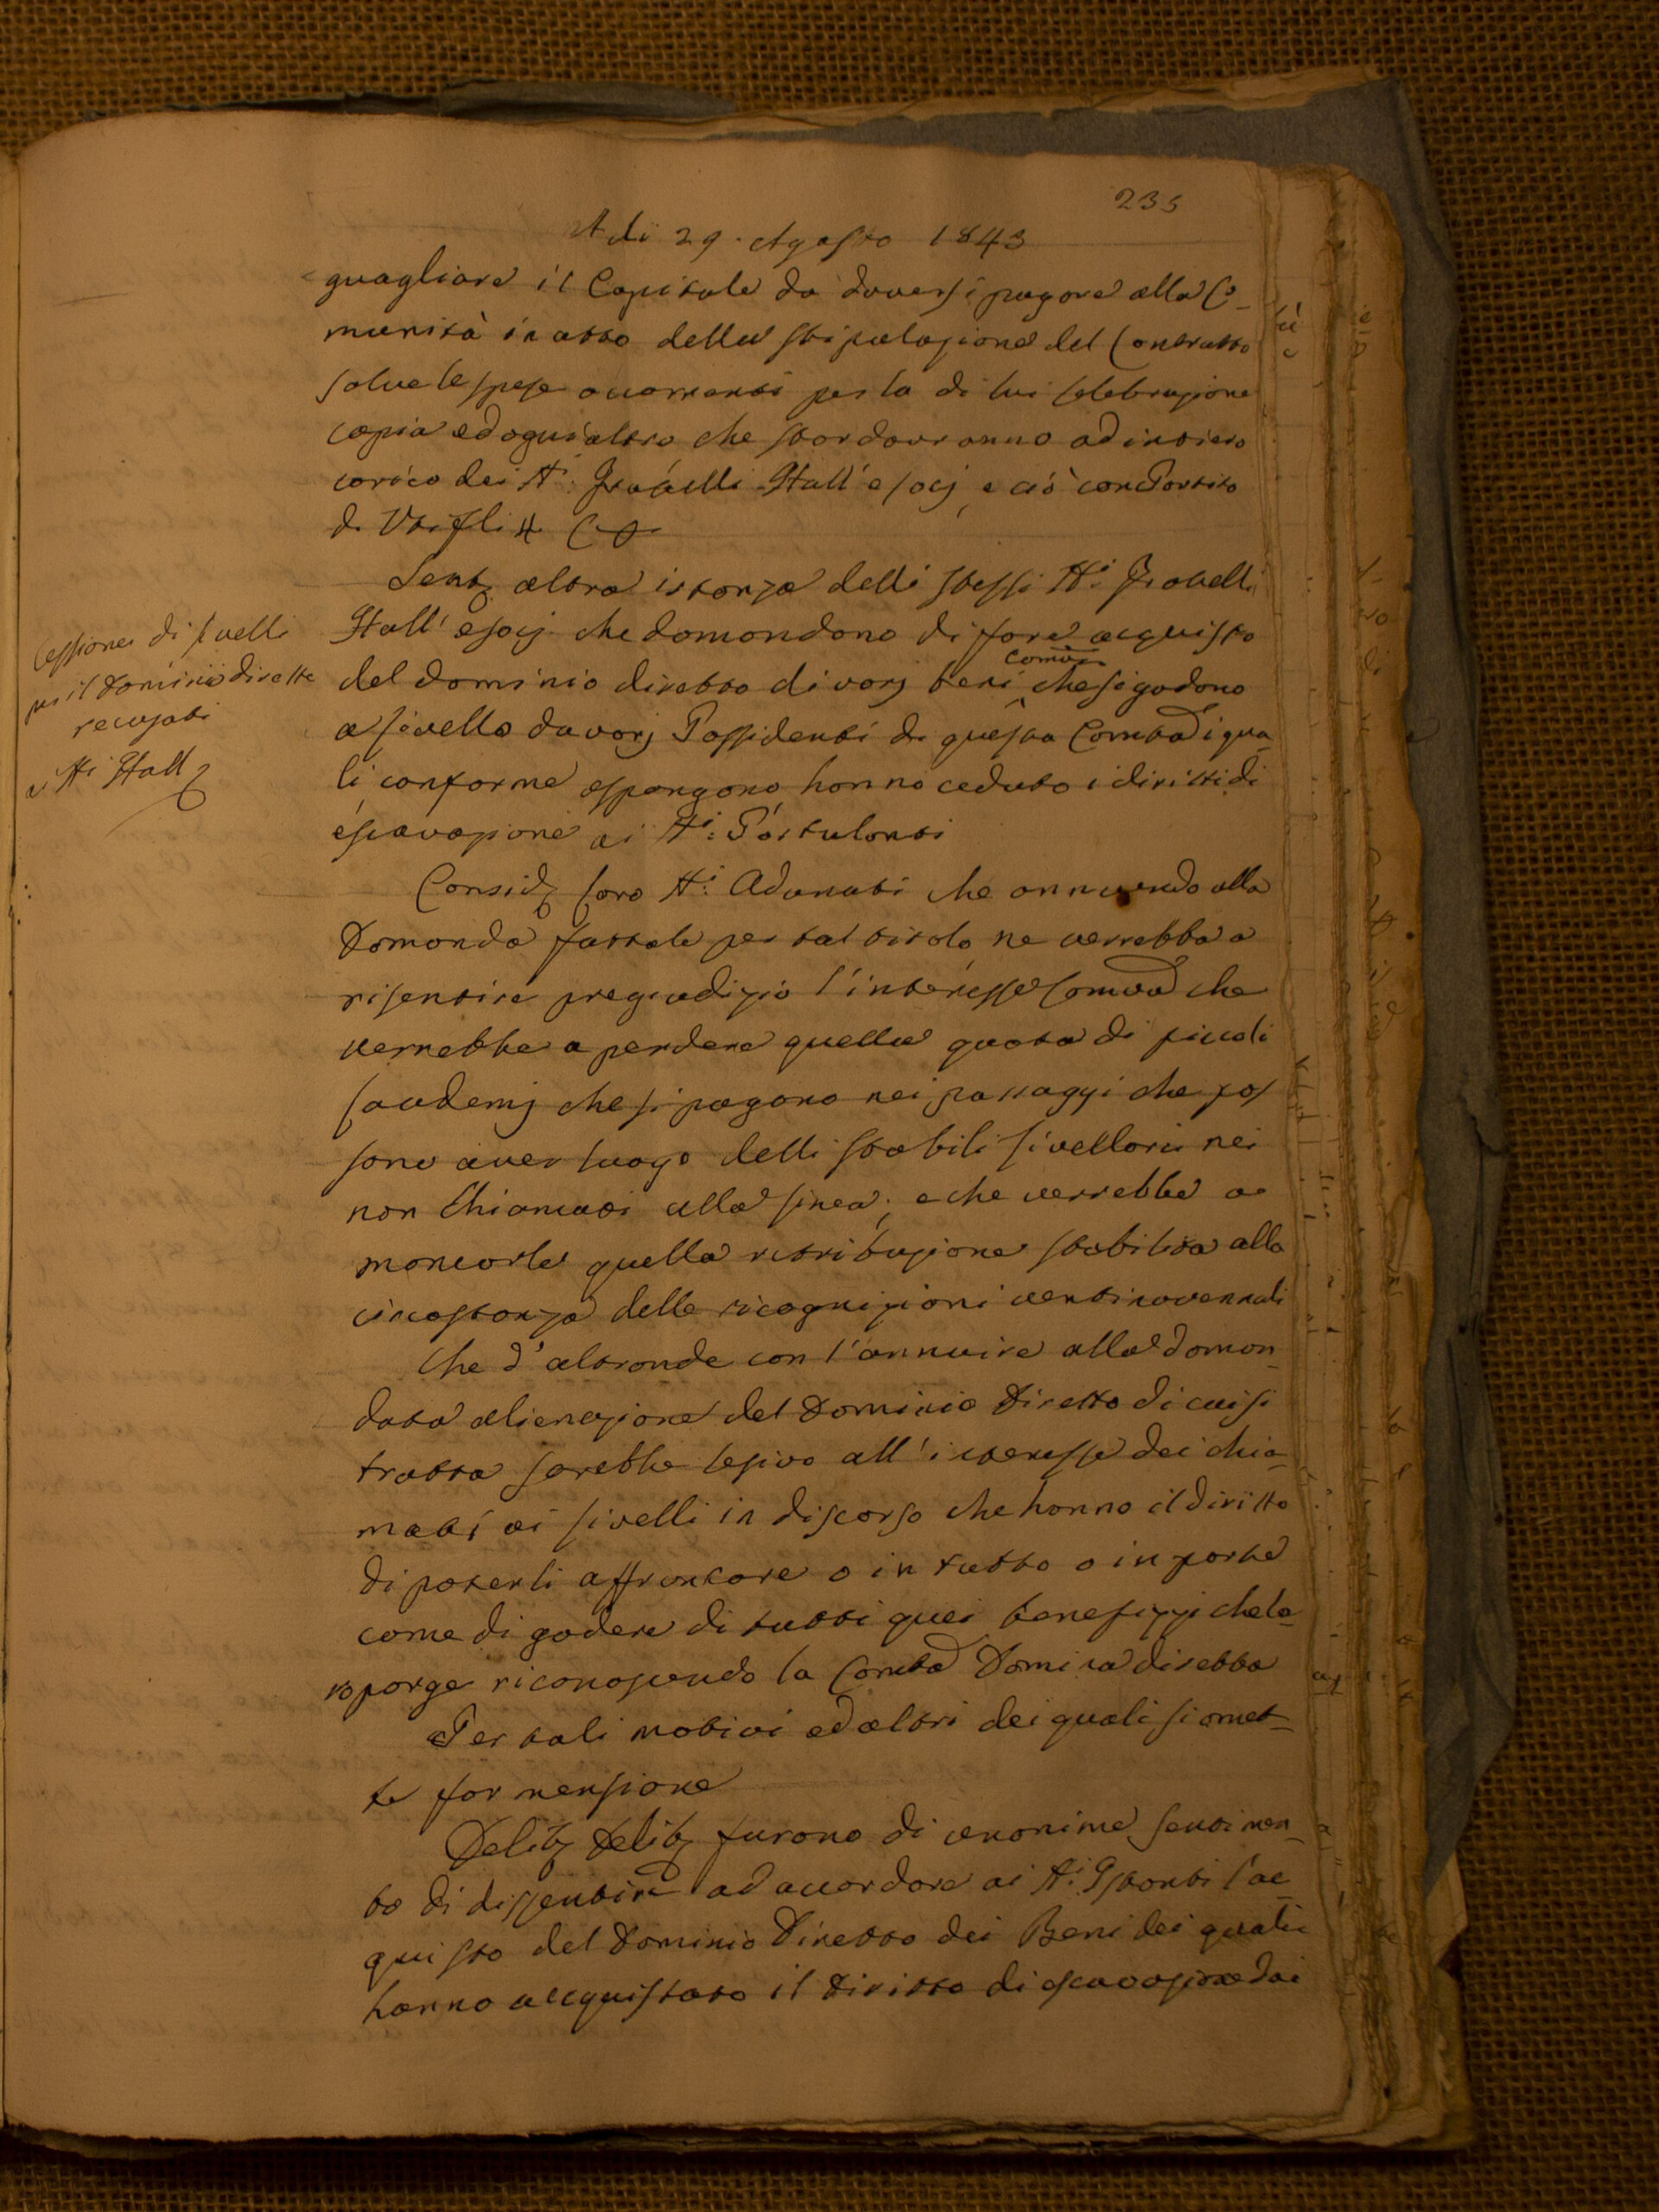 235
Adi 29. Agosto 1843
guagliare il Capitale da doversi pagare alla Co-
munità in atto della stipulazione del Contratto
salve le spese occorrenti per la di lui celebrazione
copia ed ogni altro che star dovranno ad intiero
carico dei SS.i Fratelli Hall e socj, e ciò con Partito
di Voti
Sent. altra istanza delli stessi SS.i Fratelli
Hall e socj che domandono di fare acquisto
del dominio diretto di varj beni Comu.i che si godono
a livello da varj Possidenti di questa Comtà i qua
li conforme espongono hanno ceduto i diritti di
escavazione ai SS.i Postulanti
Cessione di livelli
per il dominio diretto
recusati
a SS.i Hall
Consid. loro SS.i Adunati che annuendo alla
Domanda fattale per tal titolo ne verrebba a
risentire pregiudizio l'interesse Comu che
verrebbe a perdere quella quota di piccoli
laudemj che si pagano nei passaggi che pos
sono aver luogo delli stabili livellari nei
non Chiamati alla linea, e che verrebbe a
mancarle quella retribuzione stabilita alla
circostanza delle ricognizioni ventinovennali
Che d'altronde con l'annuire alla doman-
data alienazione del Dominio Diretto di cui si
tratta sarebbe lesivo all'interesse dei chia-
mati ai livelli in discorso che hanno il diritto
di poterli affrancare o in tutto o in parte
come di godere di tutti quei benefizzi che lo-
ro porge riconoscendo la Comtà Domina diretta
Per tali motivi ed altri dei quali si omet-
te far menzione
Delib. Delib. furono di unanime sentimen-
to di dissentire ad accordare ai SS.i Istanti l'ac
quisto del Dominio Diretto dei Beni dei quali
hanno acquistato il Diritto di escavazione dai